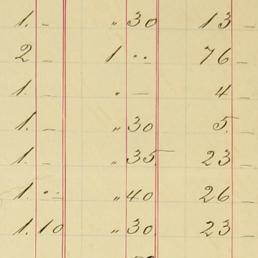 1. – „ 30 13 –
2 – 1 .. 76 –
1 – . – 4 –
1. – „ 30 5. –
1. – „ 35. 23 –
1. .. „ 40 26 –
1. 10 „ 30. 23 –